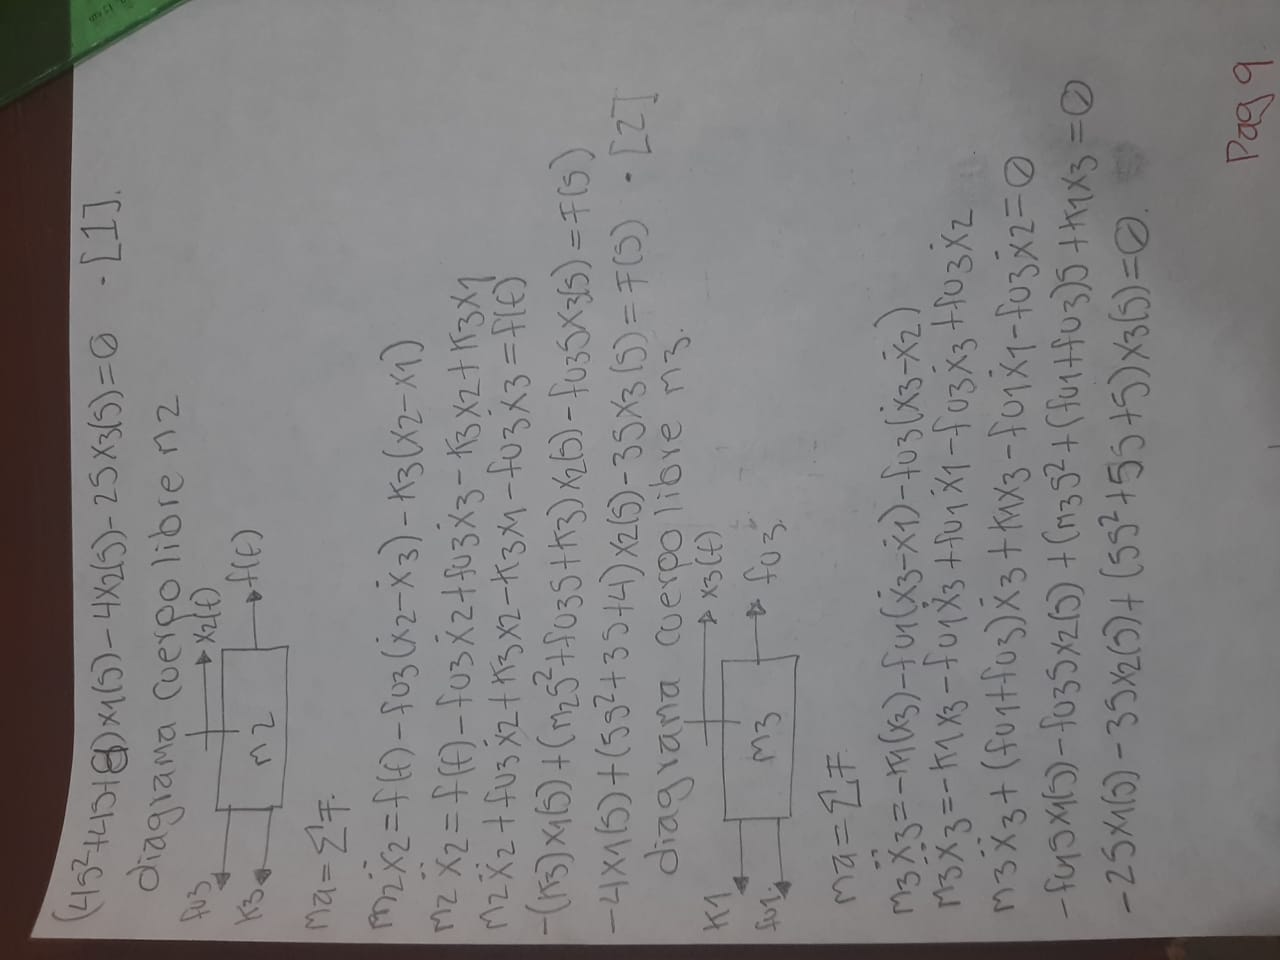 (4s²+4s+8)x1(s)-4x2(s)-2sx3(s)=0 ·[1].
diagrama cuerpo libre m2
fv3 x2(t)
K3 m2 f(t)
ma=ΣF.
m2ẍ2=f(t)-fv3(ẋ2-ẋ3)-K3(x2-x1)
m2ẍ2=f(t)-fv3ẋ2+fv3ẋ3-K3x2+K3x1
m2ẍ2+fv3ẋ2+K3x2-K3x1-fv3ẋ3=f(t)
-(K3)x1(s)+(m2s²+fv3s+K3)x2(s)-fv3sx3(s)=F(s)
-4x1(s)+(5s²+3s+4)x2(s)-3sx3(s)=F(s) ·[2]
diagrama cuerpo libre m3.
K1 x3(t)
fv1. m3 fv3.
ma=ΣF
m3ẍ3=-K1(x3)-fv1(ẋ3-ẋ1)-fv3(ẋ3-ẋ2)
m3ẍ3=-K1x3-fv1ẋ3+fv1ẋ1-fv3ẋ3+fv3ẋ2
m3ẍ3+(fv1+fv3)ẋ3+K1x3-fv1ẋ1-fv3ẋ2=0
-fv1sx1(s)-fv3sx2(s)+(m3s²+(fv1+fv3)s+K1x3=0
-2sx1(s)-3sx2(s)+(5s²+5s+5)x3(s)=0.
Pag 9